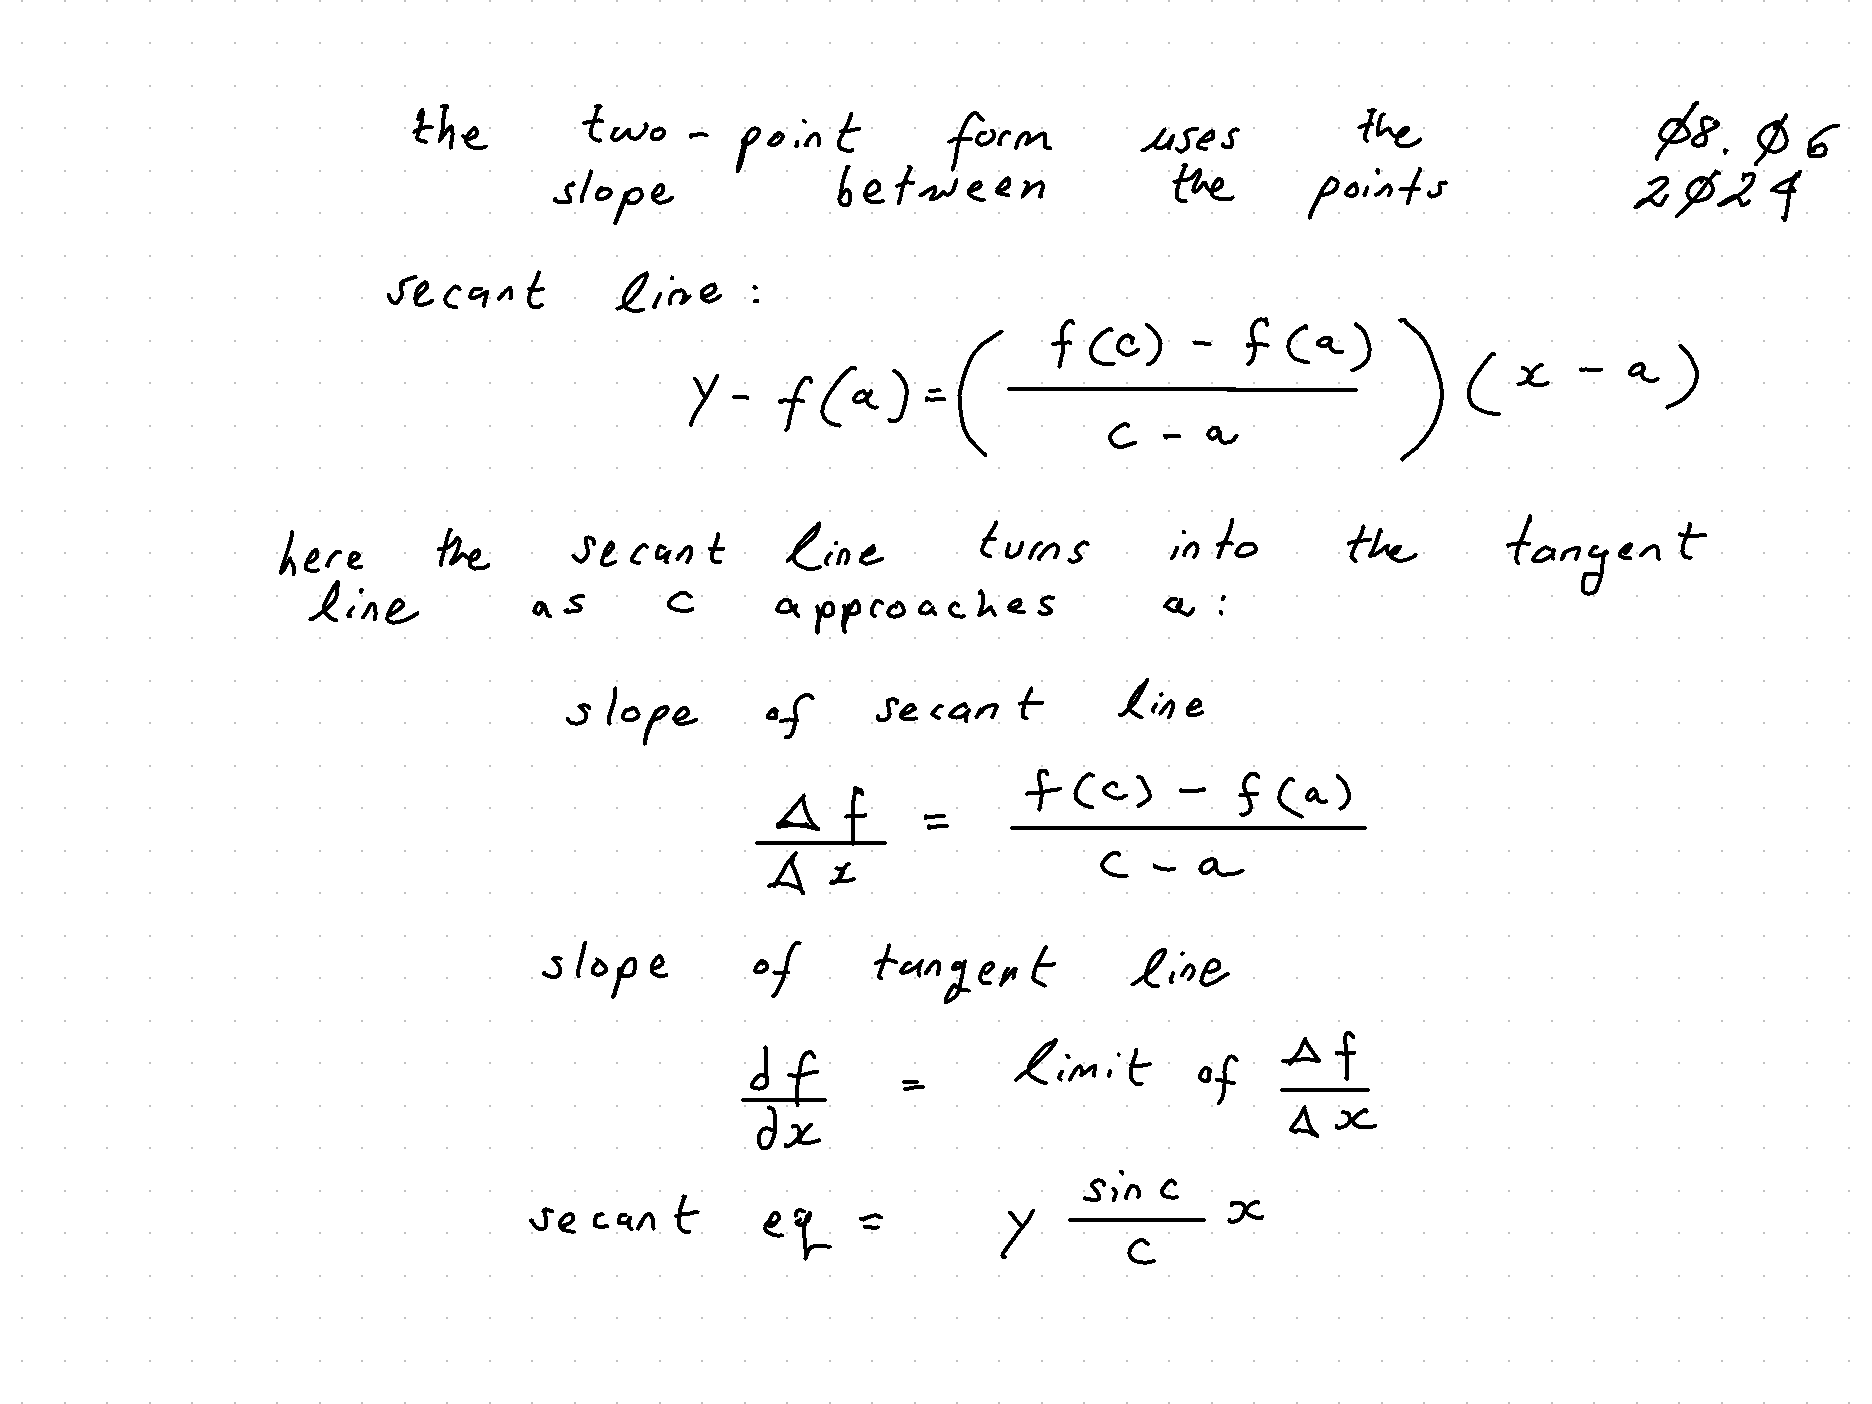 the two-point form uses the
slope between the points
Ø8.Ø6
2Ø24
secant line:
y - f(a) = ( (f(c) - f(a)) / (c - a) ) (x - a)
here the secant line turns into the tangent
line as c approaches a:
slope of secant line
Δf / Δx = (f(c) - f(a)) / (c - a)
slope of tangent line
df / dx = limit of Δf / Δx
secant eq = y (sin c / c) x